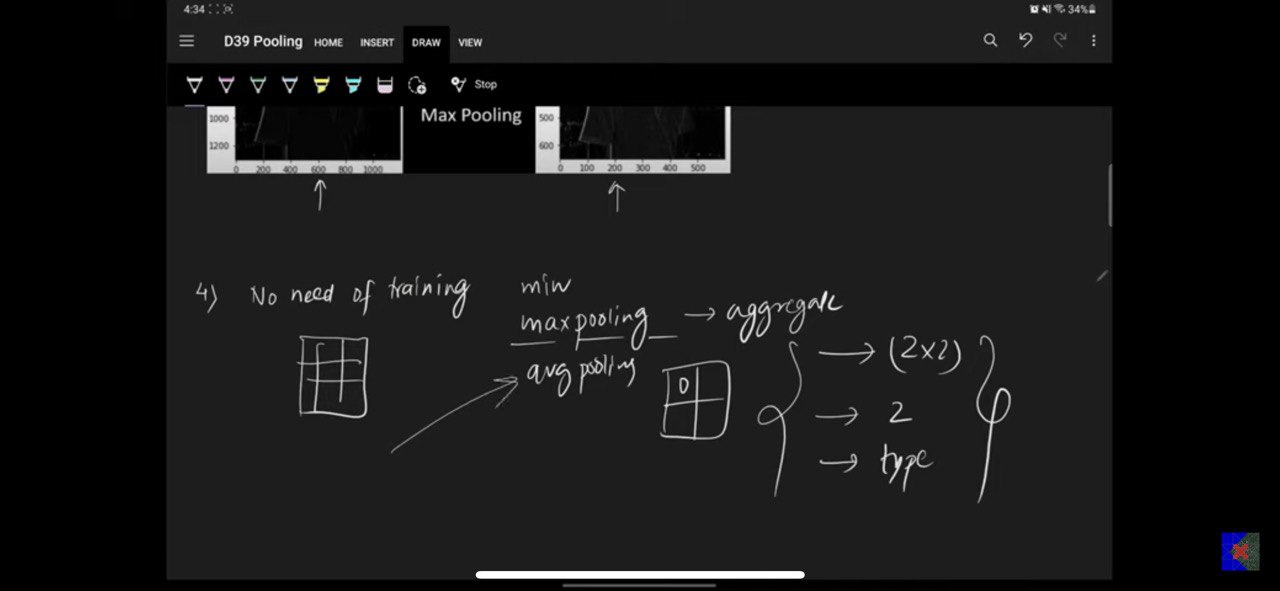 4:34 34%
D39 Pooling HOME INSERT DRAW VIEW
Stop
1000
1200
0 200 400 600 800 1000
Max Pooling
500
600
0 100 200 300 400 500
4) No need of training
min
max pooling → aggregate
avg pooling
0
→ (2x2)
→ 2
→ type